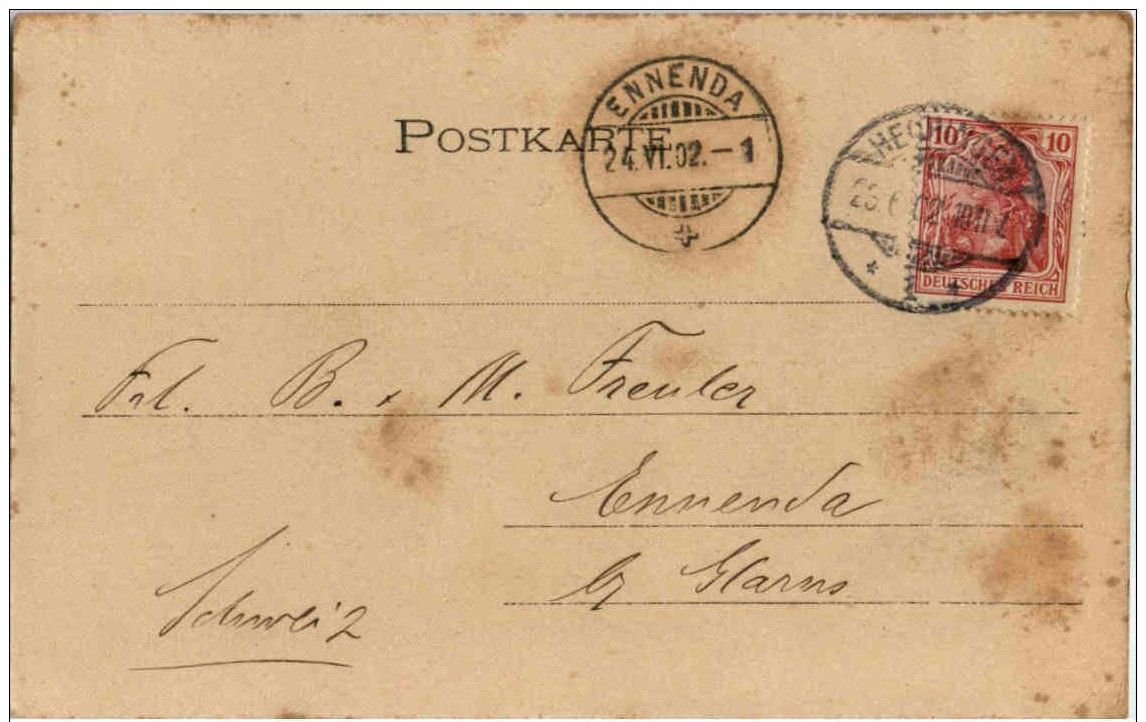 POSTKARTE
ENNENDA
24.VI.02.–1
HECHINGEN
10 10
DEUTSCHES REICH
Frl. B. & M. Freuler
Ennenda
by Glarus
Schweiz